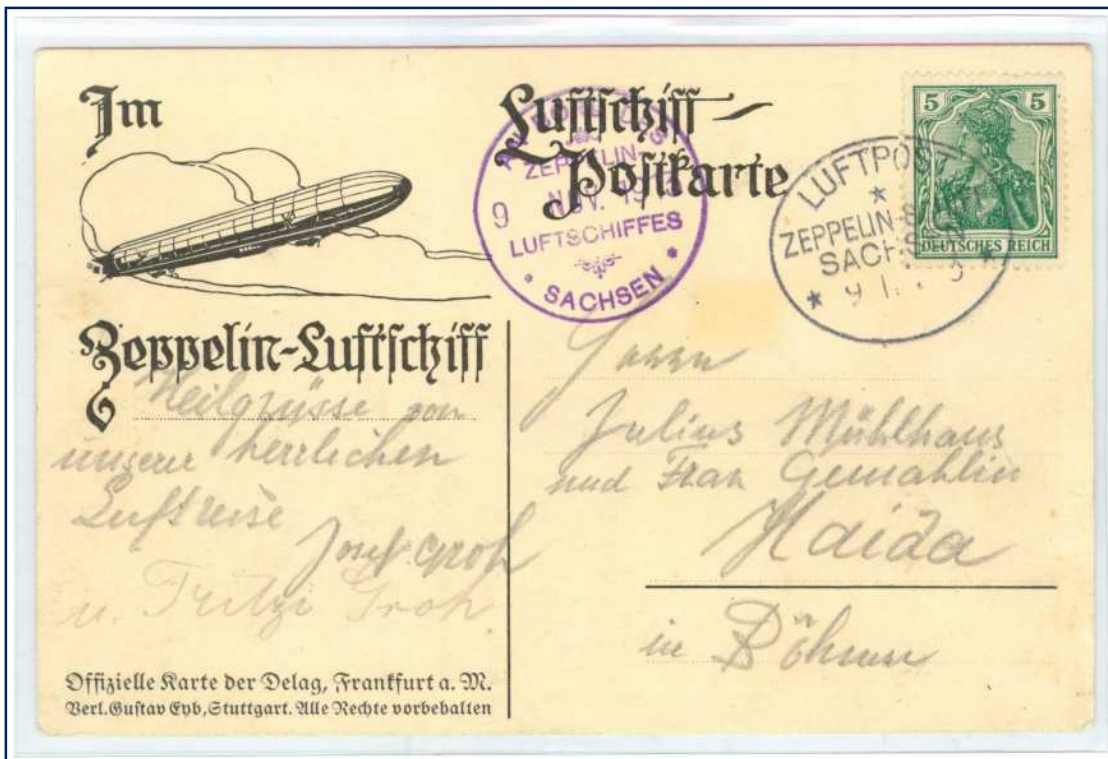 Im
Luftschiff-
Postkarte
AN BORD DES
ZEPPELIN-
9 NOV. 19
LUFTSCHIFFES
* SACHSEN *
5 5
DEUTSCHES REICH
LUFTPOST
ZEPPELIN-
SACHSEN
Zeppelin-Luftschiff
Heilgrüsse von
unserer herrlichen
Luftreise
Josef Groh
u. Fritzi Groh.
Herrn
Julius Mühlhaus
und Frau Gemahlin
Haida
in Böhmen
Offizielle Karte der Delag, Frankfurt a. M.
Verl. Gustav Eyb, Stuttgart. Alle Rechte vorbehalten